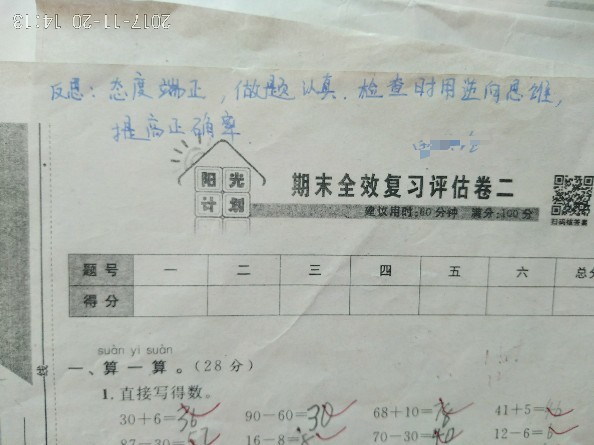 2017-11-20 14:13
反思：态度端正，做题认真．检查时用逆向思维，
提高正确率
阳光
计划
期末全效复习评估卷二
建议用时:60分钟 满分:100分
扫码核答案
题号 一 二 三 四 五 六 总分
得分
线
suàn yi suàn
一、算一算。(28分)
1. 直接写得数。
30+6=36 90-60=30 68+10=78 41+5=46
87-30=57 16-8=8 70-30=40 12-6=6